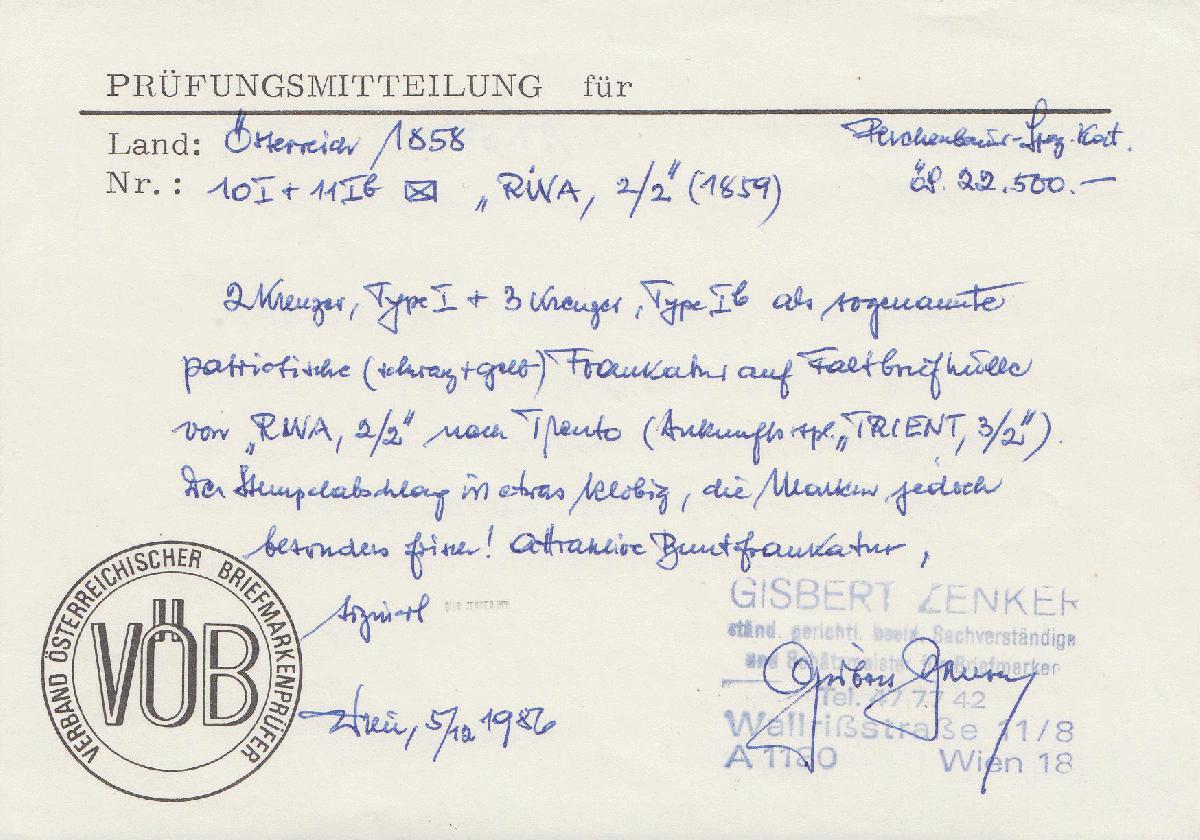 PRÜFUNGSMITTEILUNG für
Land: Österreich /1858
Ferchenbauer-Spez. Kat.
Nr.: 10I + 11Ib „RIVA, 2/2" (1859)
öS. 22.500.—
2 Kreuzer, Type I + 3 Kreuzer, Type Ib als sogenannte
patriotische (schwarz + gelb) Frankatur auf Faltbriefhülle
von „RIVA, 2/2" nach Trento (Ankunftsstpl. „TRIENT, 3/2").
Der Stempelabschlag ist etwas klobig, die Marken jedoch
besonders frisch! Attraktive Buntfrankatur,
signiert
VERBAND ÖSTERREICHISCHER BRIEFMARKENPRÜFER
VÖB
Wien, 5/12 1986
GISBERT ZENKER
ständ. gerichtl. beeid. Sachverständige
und Schätzmeister für Briefmarken
Tel. 47 77 42
Wallrißstraße 11/8
A 1180 Wien 18